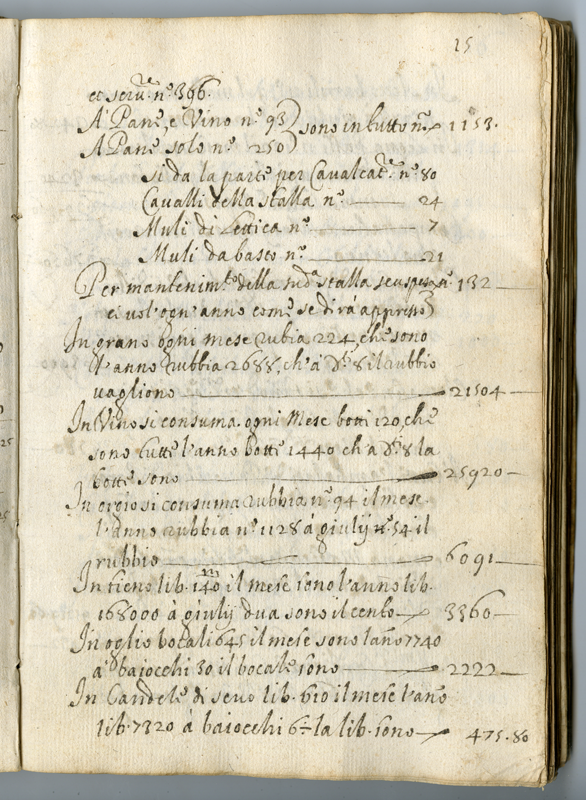 15
et seruᵗⁱ nº 396.
A' Pane, e Vino nº 93) sono in tutto nº 1153.
A Pane solo nº 250)
si da la parte per Caualcatʳᵉ nº 80
Caualli della stalla nº 24
Muli di Lettica nº 7
Muli da basto nº 21
Per mantenimᵗᵒ della sudᵃ stalla nº 132
ci uol' ogn' anno come se dirà appresso)
In grano ogni mese rubia 224, che sono
l'anno rubbia 2688, ch'à dᵗ 8 il rubbio
uagliono 21504
In Vino si consuma ogni Mese botti 120, che
sono tutte l'anno botte 1440 ch'a dᵗ 8 la
botte sono 25920
In orgio si consuma rubbia nº 94 il mese
l'anno rubbia nº 1128 à giulij nº 54 il
rubbio 6091
In fieno lib. 140 il mese sono l'anno lib.
168000 à giulij dua sono il cento 3360
In oglio bocali 645 il mese sono l'año 7740
a' baiocchi 30 il bocale sono 2222
In Candele di seuo lib. 610 il mese l'año
lib. 7320 à baiocchi 6½ la lib. sono 475.80